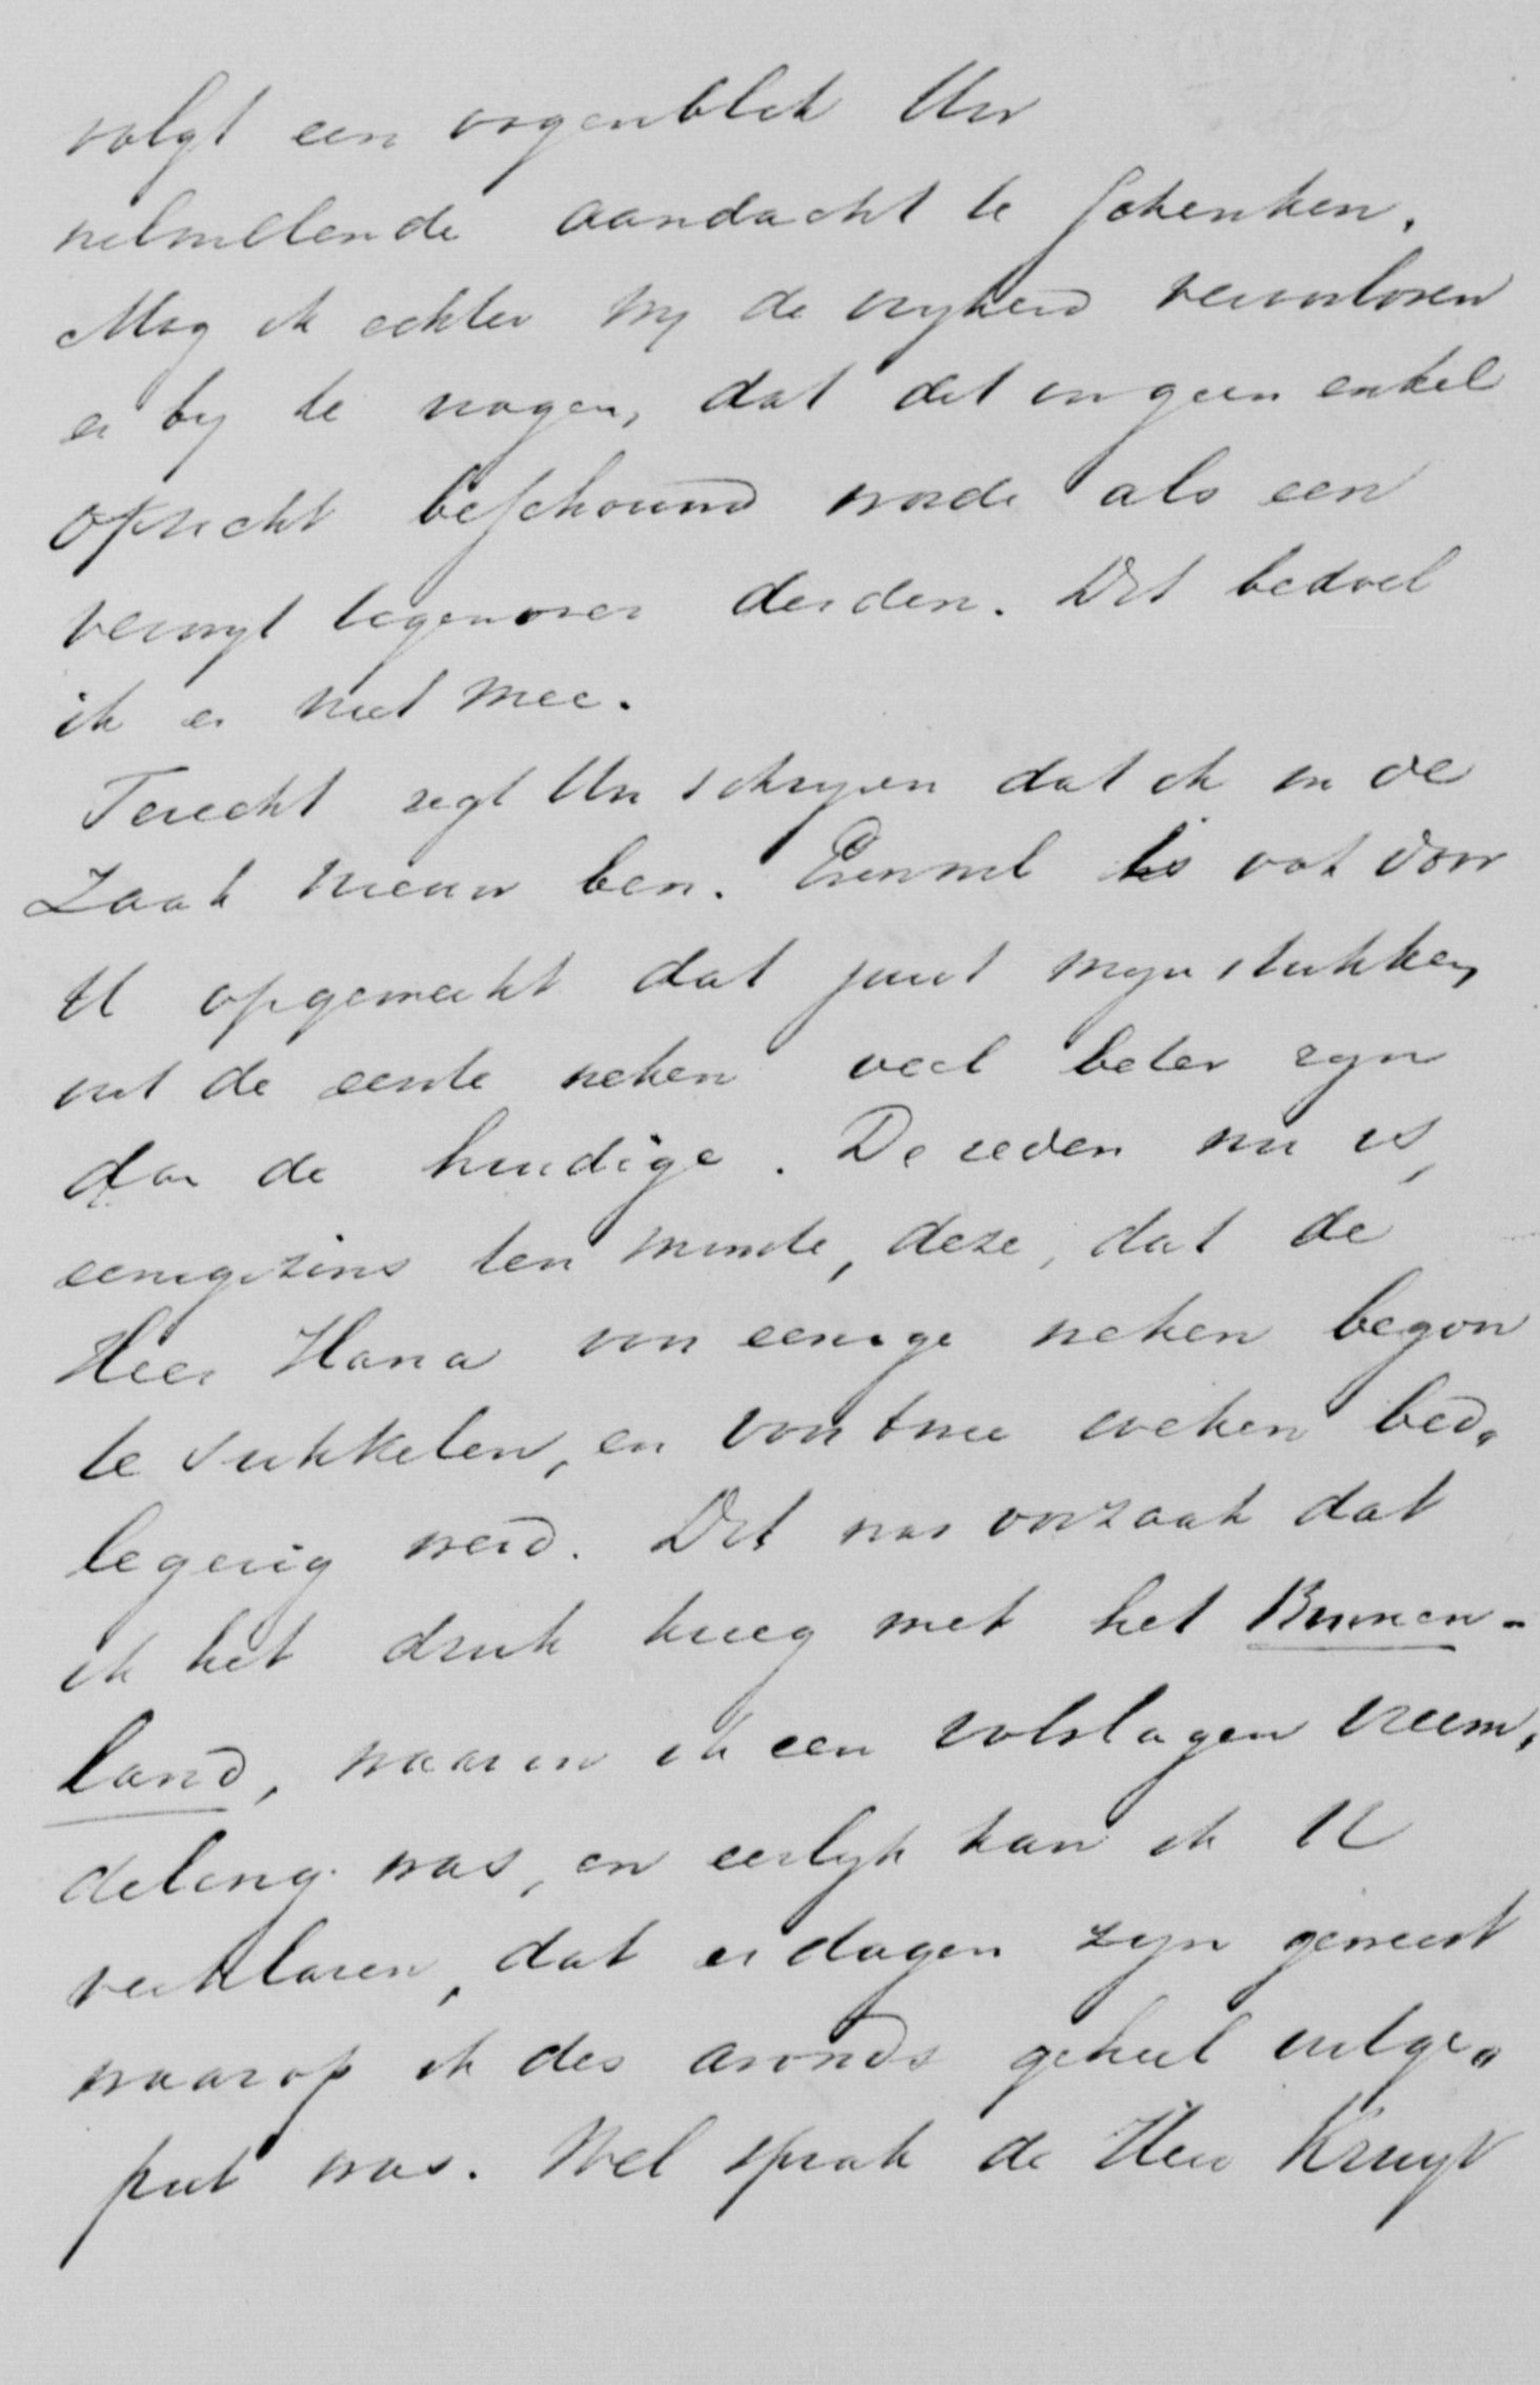 volgt een oogenblik Uw
welwillende aandacht te schenken.
Mag ik echter my de vryheid veroorloven
er by te voegen, dat dit in geen enkel
opzicht beschouwd worde als een
verwyt tegenover derden. Dit bedoel
ik er niet mee.
Terecht zegt Uw schryven dat ik in de
zaak nieuw ben. Evenwel is ook door
U opgemerkt dat juist myn stukken
uit de eerste weken veel beter zyn
dan de huidige. De reden nu is,
eenigszins ten minste, deze, dat de
Heer Hana voor eenige weken begon
te sukkelen, en voor twee weken bed„
legerig werd. Dit was oorzaak dat
ik het druk kreeg met het Binnen-
land, waarin ik een volslagen vreem„
deling was, en eerlyk kan ik U
verklaren, dat er dagen zyn geweest
waarop ik des avonds geheel uitge„
put was. Wel sprak de Heer Kruyt